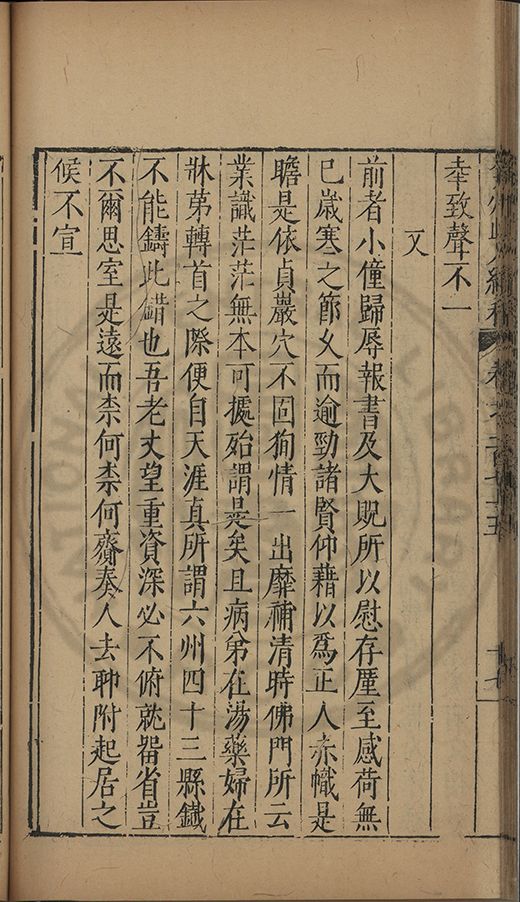 奉致聲不一
又
前者小僮歸辱報書及大貺所以慰存厘至感荷無
已歲寒之節久而逾勁諸賢仰藉以爲正人赤幟是
瞻是依貞巖穴不固狥情一出靡補清時佛門所云
業識茫茫無本可據殆謂是矣且病弟在湯藥婦在
牀蓐轉首之際便自天涯真所謂六州四十三縣鐵
不能鑄此錯也吾老丈望重資深必不俯就畱省豈
不爾思室是遠而柰何柰何齎奏人去聊附起居之
候不宣